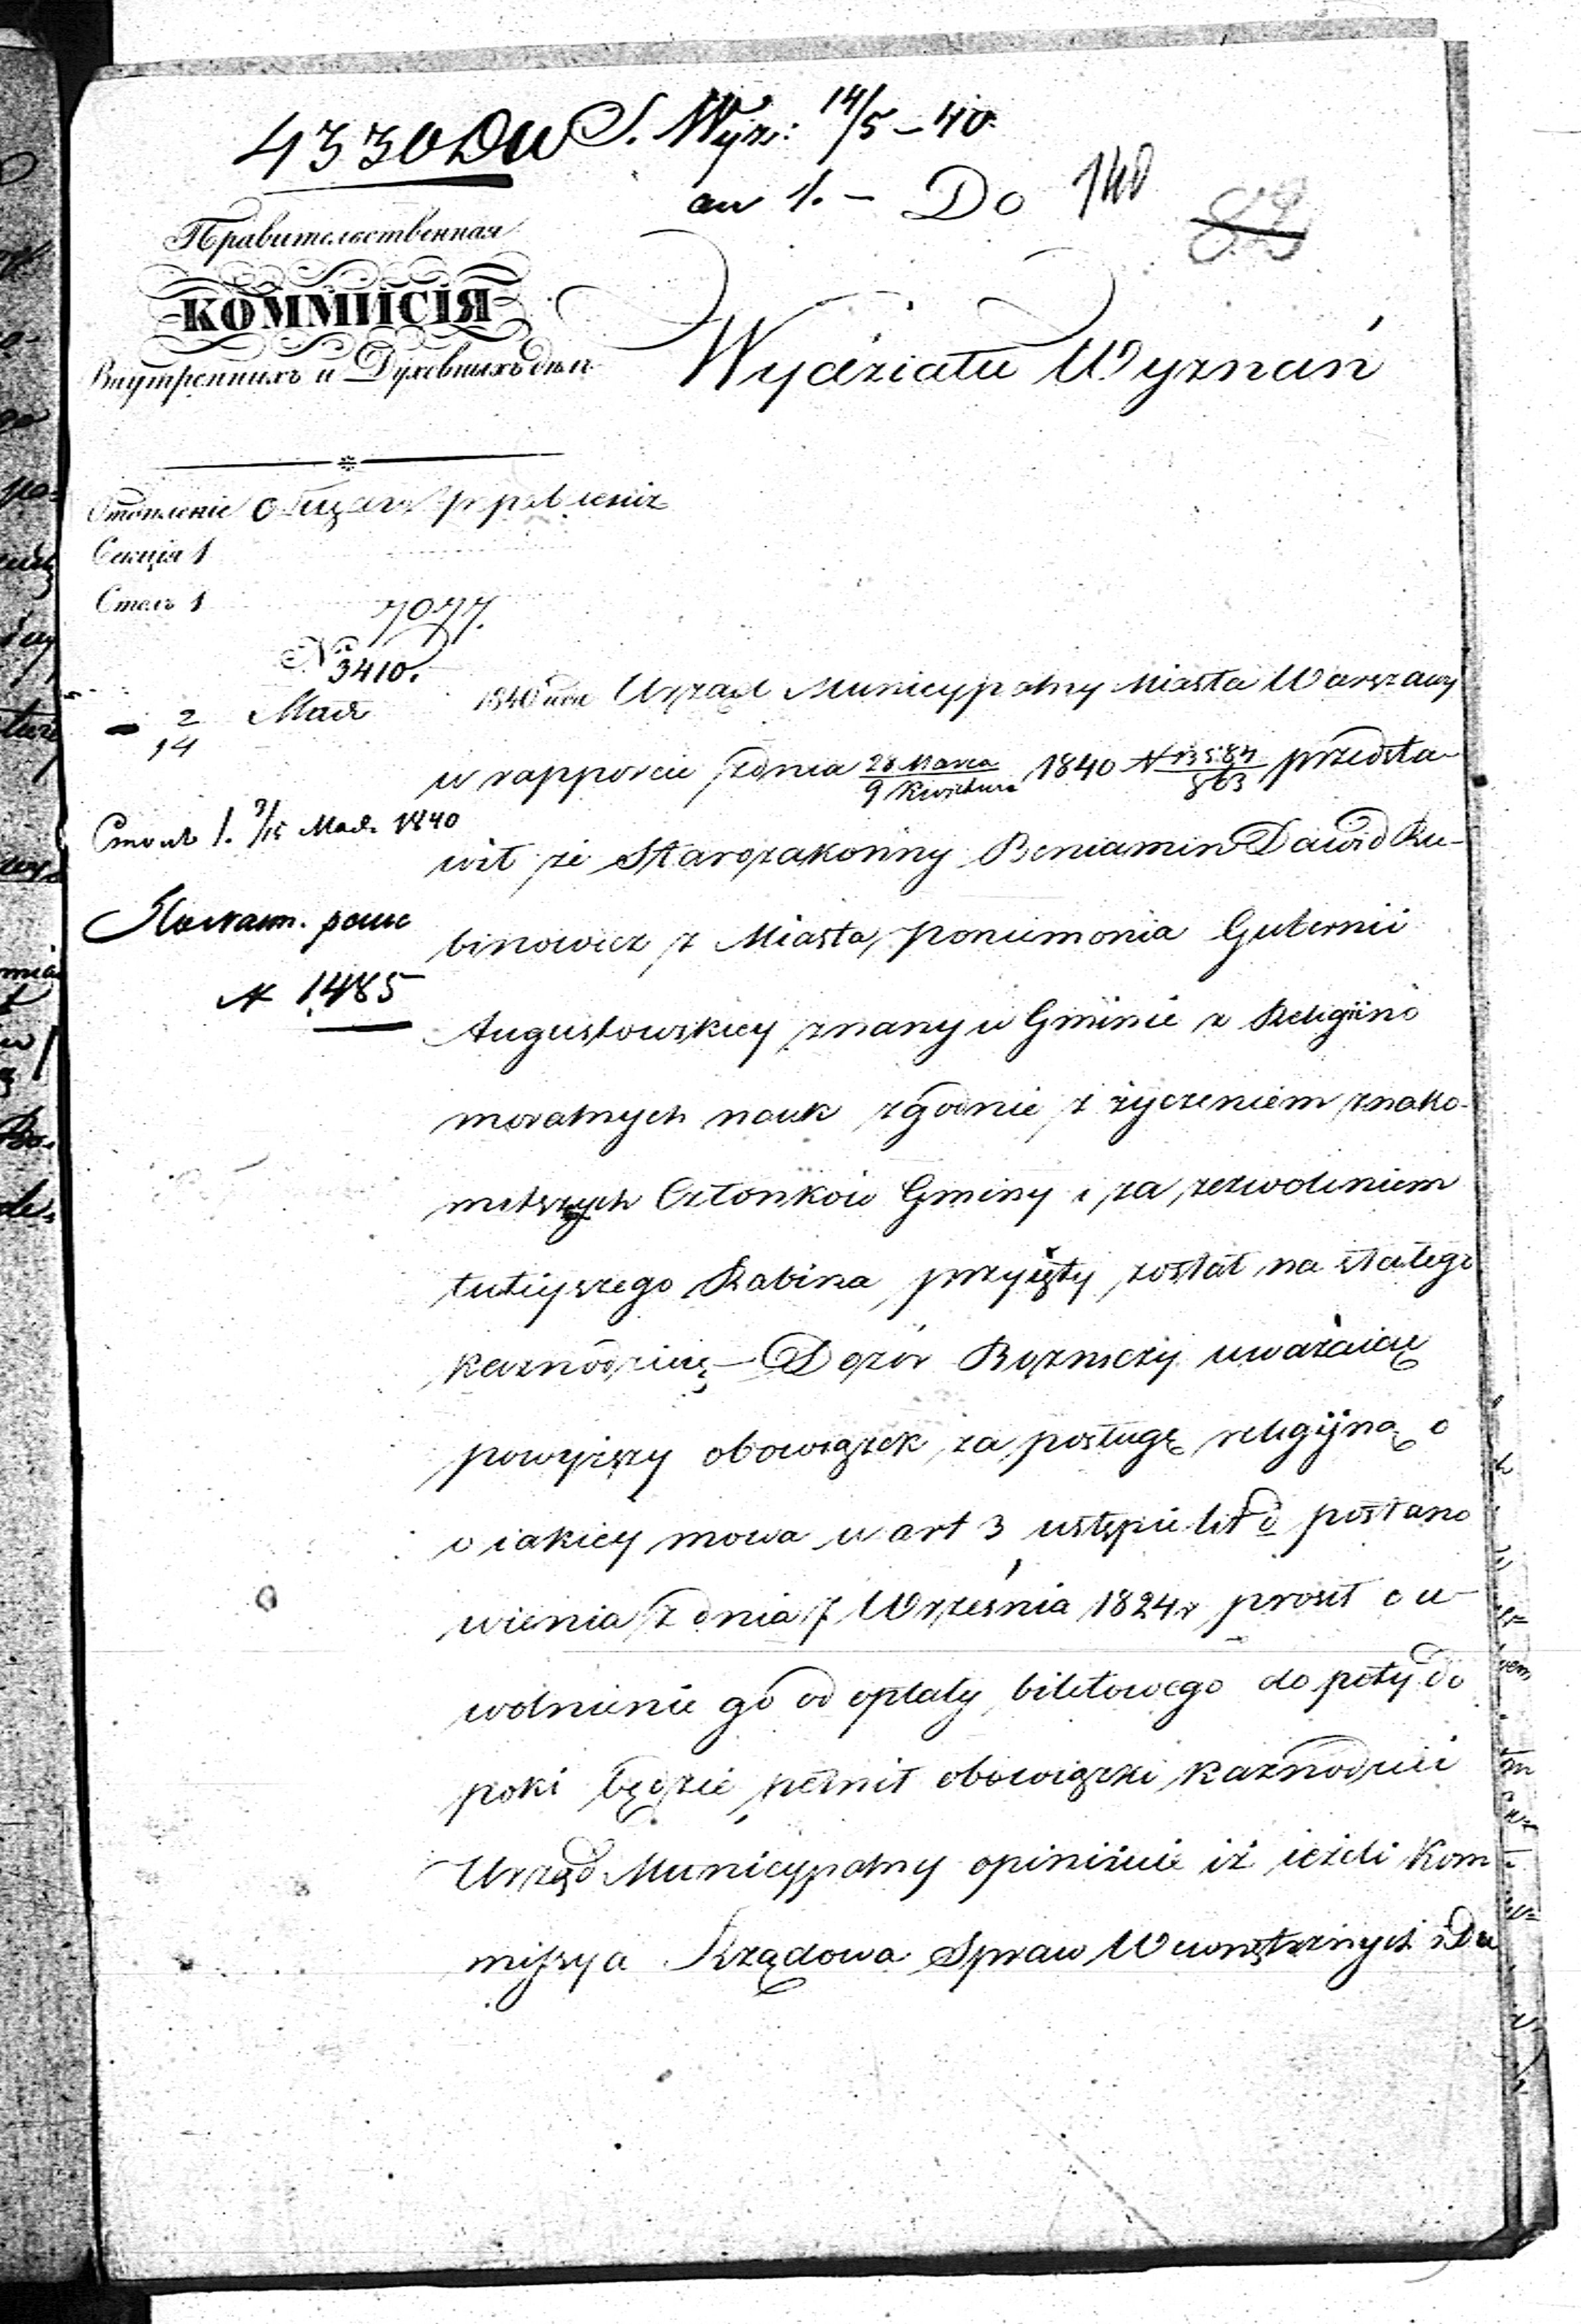 4330 DW S. Wyzn: 14/5 – 40.
an 1. – Do 140
82
Правительственная
КОММИСІЯ
Внутреннихъ и Духовныхъ дѣлъ
Wydziału Wyznań
Отдѣленіе Общаго Управленія
Секція 1
Столъ 1
7077.
№ 3410.
2/14 Мая 1840 года
Столъ 1. 3/15 Мая 1840
№ 1485
Urząd Municypalny Miasta Warszawy
w rapporcie z dnia 28 Marca / 9 Kwietnia 1840 N 13584/863 przedsta-
wił że Starozakonny Beniamin Dawid Ru-
binowicz z Miasta Poniemonia Gubernii
Augustowskiey znany w Gminie z Religiino
moralnych nauk zgodnie z życzeniem znako-
mitszych Członków Gminy i za zezwoleniem
tuteyszego Rabina przyięty został na stałego
kaznodzieię – Dozór Bozniczy uważaiąc
powyższy obowiązek za posługę religijną o
o iakiey mowa w art 3 ustępie lit d postano
wienia z dnia 7 Września 1824 r prosił o u-
wolnienie go od opłaty biletowego do póty do
poki będzie pełnił obowiązki kaznodziei
Urząd Municypalny opiniuie iż ieżeli Kom
missya Rządowa Spraw Wewnętrznych i Du